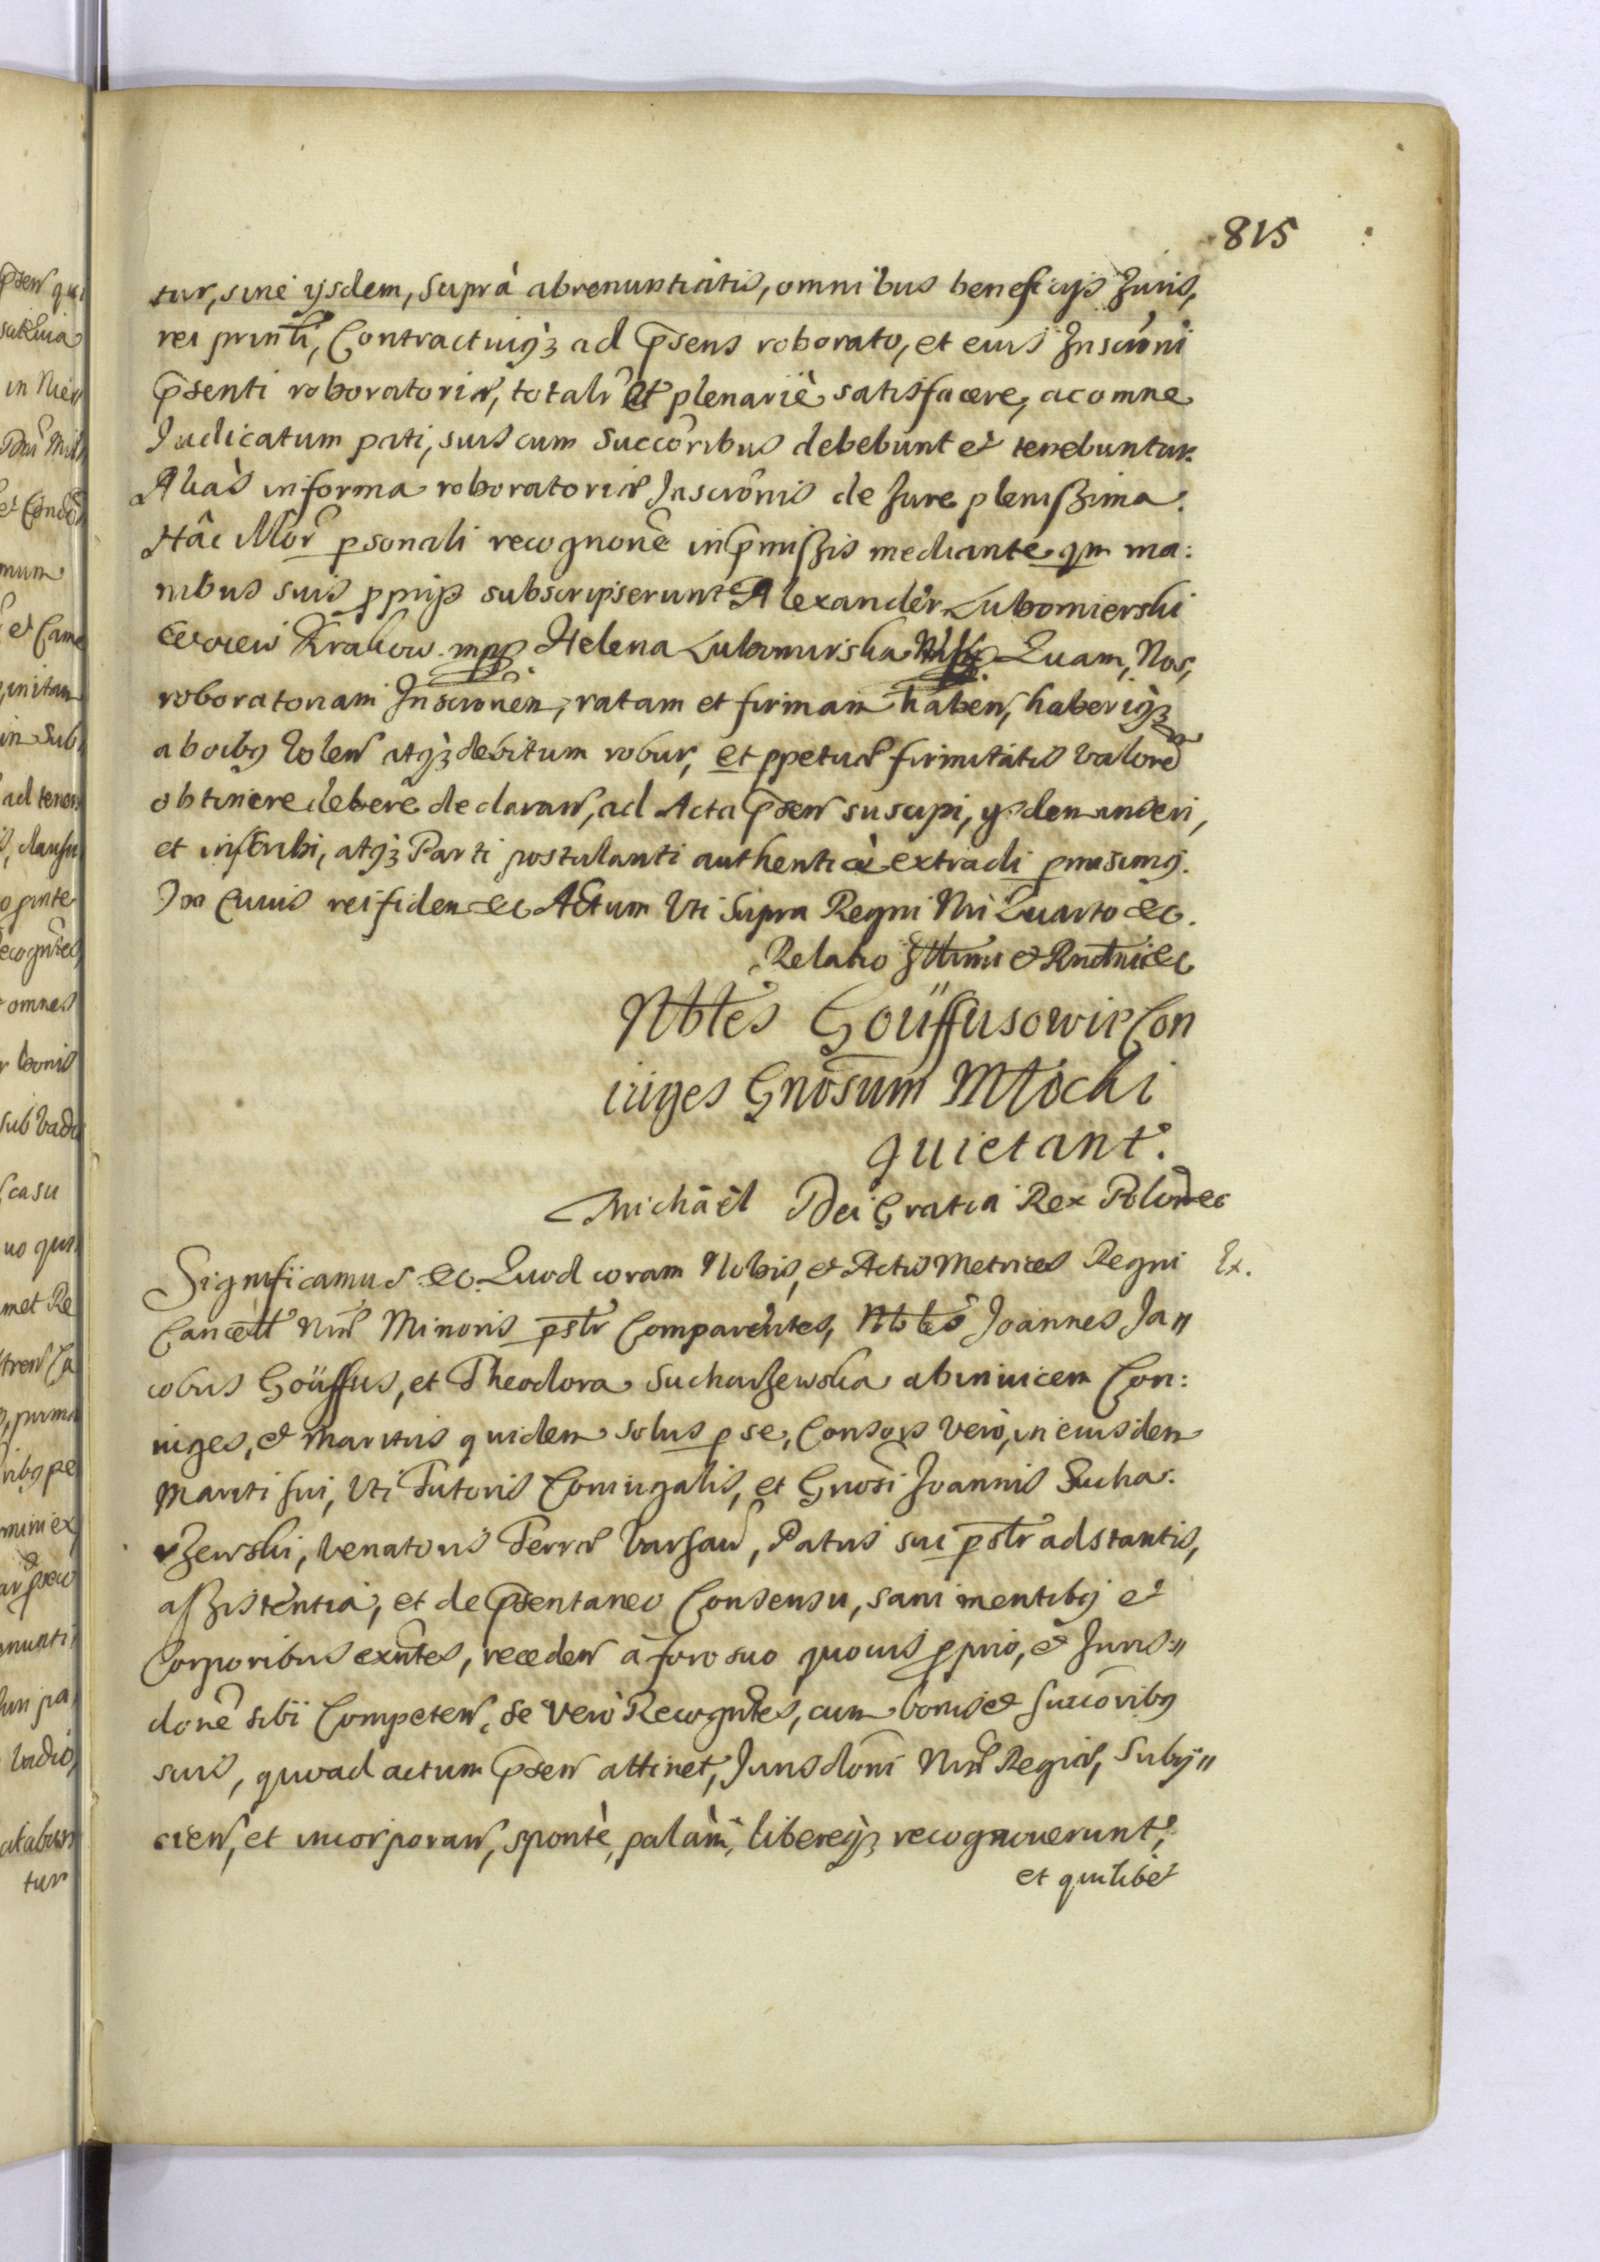 815
tur, sine ijsdem, suprà abrenuntiatis, omnibus beneficijs Juris,
rei prinli, Contractuiqꝫ ad p̃sens roborato, et eius Inscrõni
p̃senti roboratoriæ, totalr et plenariè satisfacere, ac omne
Judicatum pati, suis cum Succõribus debebunt et tenebuntur.
Aliàs in forma roboratoriæ Inscrõnis de Jure plenissima.
Hâc Illor̃ psonali recognonẽ in p̃missis mediante qm ma:
nibus suis pprijs subscripserunt Alexander Lubomierski
Krakow. mpp Helena Lubomirska Quam, Nos,
roboratoriam Inscrõnem, ratam et firmam haben, haberiqꝫ
ab oibꝫ volen atqꝫ debitum robur, et ppetuæ firmitatis valorẽ
obtinere debere declaran, ad Acta p̃sen suscipi, ysdem inseri,
et inscribi, atqꝫ Parti postulanti authenticè extradi pmisimꝫ.
In Cuius rei fidem &c Actum Vti Supra Regni Nri Quarto &c.
Relatio Illmi & Rndmi &c
Nbles Goüffusowie Con
iuges Gnosum Młocki
quietant.
Michäel Dei Gratia Rex Polon &c
Significamus &c Quod coram Nobis, et Actis Metrices Regni Ex.
Cancell Nræ Minoris pslr Comparentes, Nbles Joannes Ja〃
cobus Goüffus, et Theodora Sucharzewska ab inuicem Con:
iuges, et Maritus quidem solus p se, Consors verò, in eiusdem
Mariti sui, Vti Tutoris Coniugalis, et Gnosi Joannis Sucha:
rzewski, Venatoris Terræ Varsau, Patris sui pslr adstantis,
assistentia, et de p̃sentaneo Consensu, sani mentibꝫ et
Corporibus exñtes, receden à foro suo quouis pprio, et Juris〃
donẽ sibi Competen, se verò Recognꝫtes, cum bonis et succõribꝫ
suis, quoad actum p̃sen attinet, Jurisdõni Nræ Regiæ, Subij〃
cien, et incorporan, spontè, palàm, libereqꝫ recognouerunt,
et quilibet